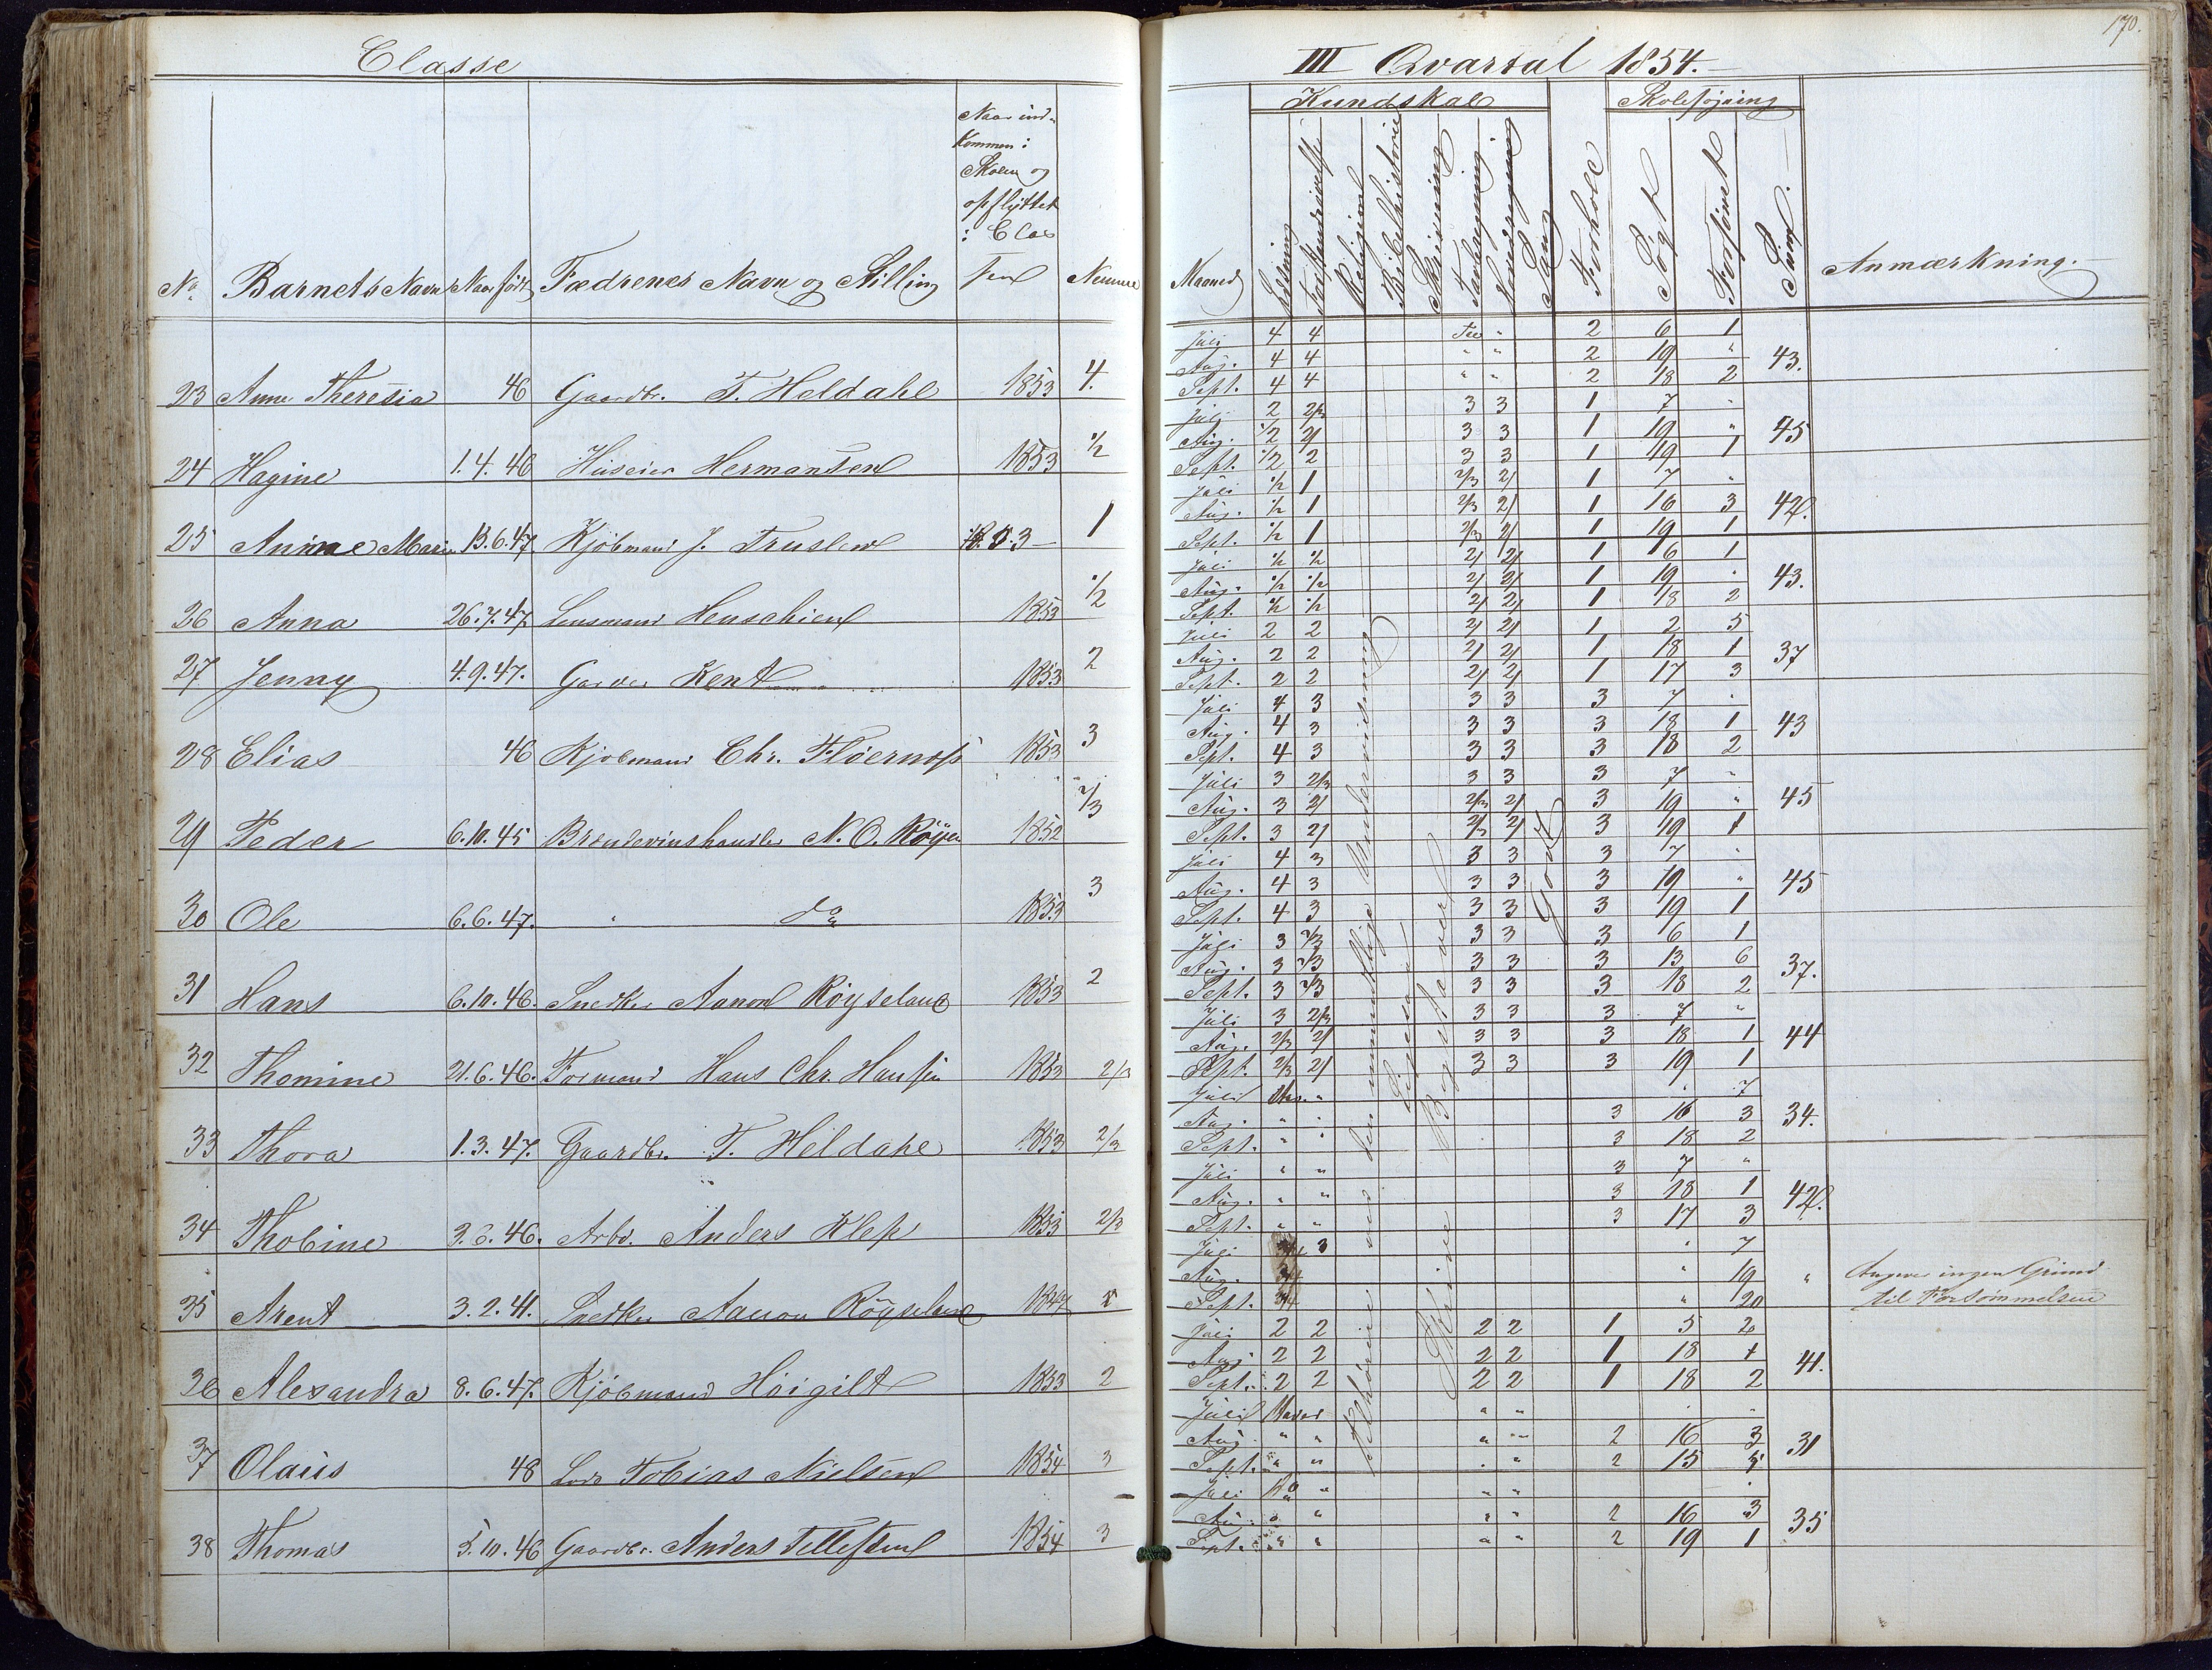 170.
Classe
III Qvartal 1854.
Naar ind-
kommen i
Skolen og
opflyttet
i Clas
sen
No Barnets Navn Naar født Fædrenes Navn og Stilling Nummer
Kundskab Skolesøgning
Maaned Læsning Forstandsøvelse Religion Bibelhistorie Skrivning Tavleregning Hovedregning Sang Forhold Søgt Forsømt Sum Anmærkning.
23 Anne Theresia 46 Gaardbr. T. Heldahl 1853 4.
Juli 4 4 2 6 1
Aug. 4 4 " " 2 19 " 43.
Sept. 4 4 " " 2 18 2
24 Hagine 1.4.46 Huseier Hermansen 1853 1/2
Juli 2 2/3 3 3 1 7 "
Aug. 1/2 2/ 3 3 1 19 " 45
Sept. 1/2 2 3 3 1 19 1
25 Anne Marie 13.6.47 Kjøbmand J. Truslew 1853 1
Juli 1/2 1 2/3 2/ 1 7 "
Aug. 1/2 1 2/3 2/ 1 16 3 42.
Sept. 1/2 1 2/3 2/ 1 19 1
26 Anna 26.7.47 Lensmand Henschien 1853 1/2
Juli 1/2 1/2 2/ 2/ 1 6 1
Aug. 1/2 1/2 2/ 2/ 1 19 " 43.
Sept. 1/2 1/2 2/ 2/ 1 18 2
27 Jenny 4.9.47. Garver Kent 1853 2
Juli 2 2 2/ 2/ 1 2 5
Aug. 2 2 2/ 2/ 1 18 1 37
Sept. 2 2 2/ 2/ 1 17 3
28 Elias 46 Kjøbmand Chr. Fløernæss 1853 3
Juli 4 3 3 3 3 7 "
Aug. 4 3 3 3 3 18 1 43
Sept. 4 3 3 3 3 18 2
29 Peder 6.10.45 Brændevinshandler N. O. Røyer 1852 2/3
Juli 3 2/3 3 3 3 7 "
Aug. 3 2/ 2/3 2/ 3 19 " 45
Sept. 3 2/ 2/3 2/ 3 19 1
30 Ole 6.6.47. " do 1853 3
Juli 4 3 3 3 3 7 "
Aug. 4 3 3 3 3 19 " 45
Sept. 4 3 3 3 3 19 1
31 Hans 6.10.46. Snedker Aanon Røyseland 1853 2
Juli 3 2/3 3 3 3 6 1
Aug. 3 2/3 3 3 3 13 6 37.
Sept. 3 2/3 3 3 3 18 2
32 Thomine 21.6.46. Formand Hans Chr. Hansen 1853 2/3
Juli 3 2/3 3 3 3 7 "
Aug. 2/3 2/ 3 3 3 18 1 44
Sept. 2/3 2/ 3 3 3 19 1
33 Thora 1.3.47. Gaardbr. T. Heldahl 1853 2/3
Juli " " 7
Aug. " " 3 16 3 34.
Sept. " " 3 18 2
34 Thobine 3.6.46. Arbd. Anders Klep 1853 2/3
Juli " " 3 7 "
Aug. " " 3 18 1 42.
Sept. " " 3 17 3
35 Arent 3.2.41. Snedker Aanon Røyseland 1847
Juli 3 " 7
Aug. 3/4 " 19 " Angiver ingen Grund
Sept. 3/4 " 20 til Forsømmelsen
36 Alexandra 8.6.47. Kjøbmand Høigilt 1853 2
Juli 2 2 2 2 1 5 2
Aug. 2 2 2 2 1 18 1 41.
Sept. 2 2 2 2 1 18 2
37 Olaus 48 Lods Tobias Nielsen 1854 3
Juli " " " "
Aug. " " " " 2 16 3 31
Sept. " " " " 2 15 5
38 Thomas 5.10.46 Gaardbr. Anders Tellefsen 1854 3
Juli do " " "
Aug. " " " " 2 16 3 35
Sept. " " " " 2 19 1
Tilhører den mundtlige Underviisning
Ligesaa
Skrive Bogstaver
Godt